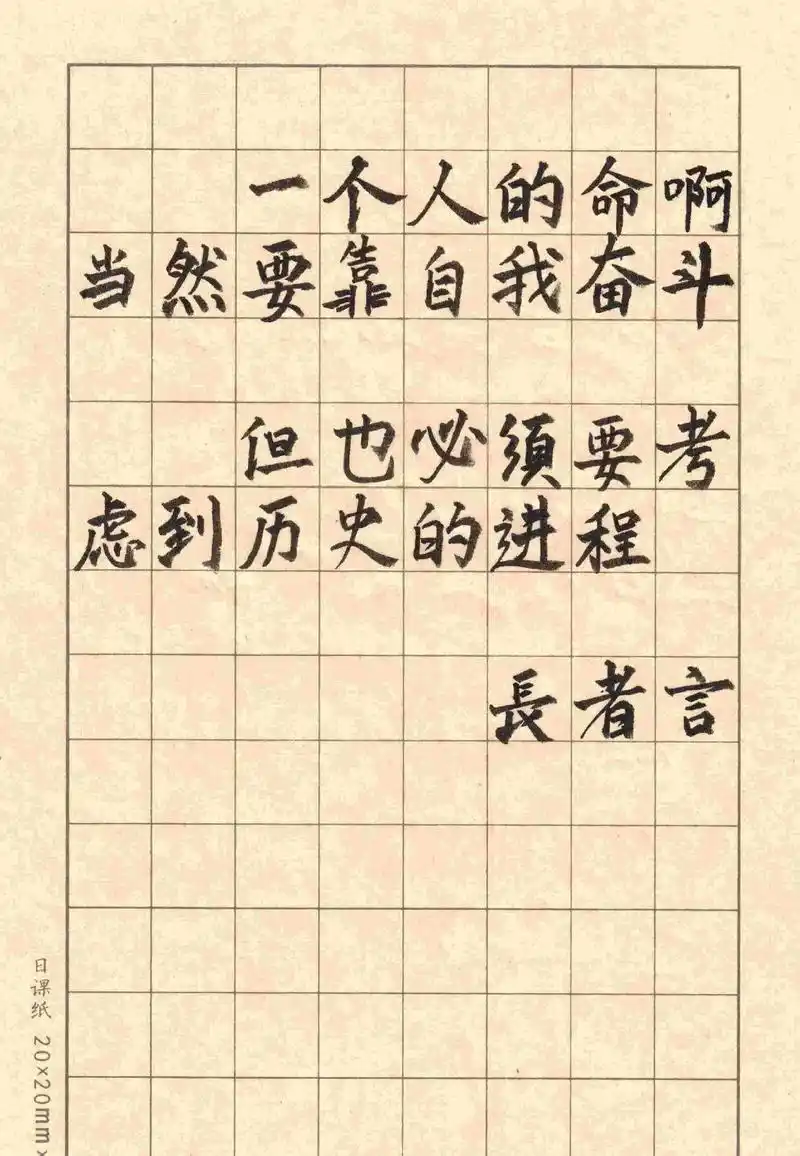 一个人的命啊
当然要靠自我奋斗
但也必须要考
虑到历史的进程
長者言
日课纸 20×20mm×